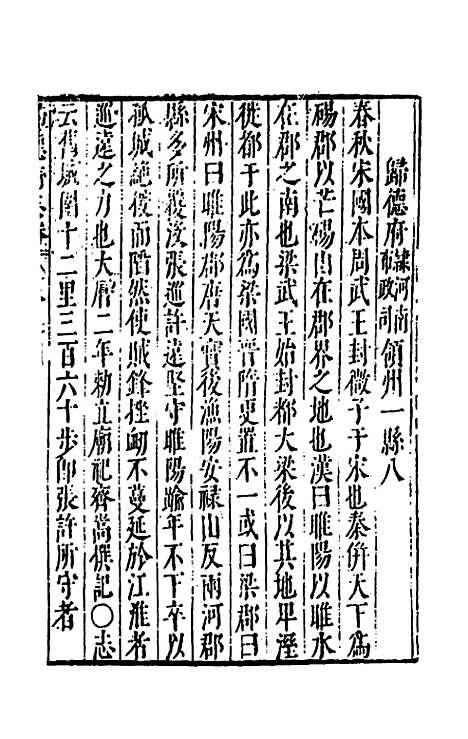 歸德府隸河南布政司領州一縣八
春秋宋國本周武王封微子于宋也秦併天下爲
碭郡以芒碭山在郡界之地也漢曰睢陽以睢水
在郡之南也梁武王始封都大梁後以其地卑溼
徙都于此亦爲梁國晉隋更置不一或曰梁郡曰
宋州曰睢陽郡唐天寶後漁陽安禄山反兩河郡
縣多所覆沒張巡許遠堅守睢陽踰年不下卒以
孤城絶援而陷然使賊鋒挫衂不蔓延於江淮者
巡遠之力也大曆二年勅立廟祀齊嵩撰記○志
云舊城圍十二里三百六十步卽張許所守者